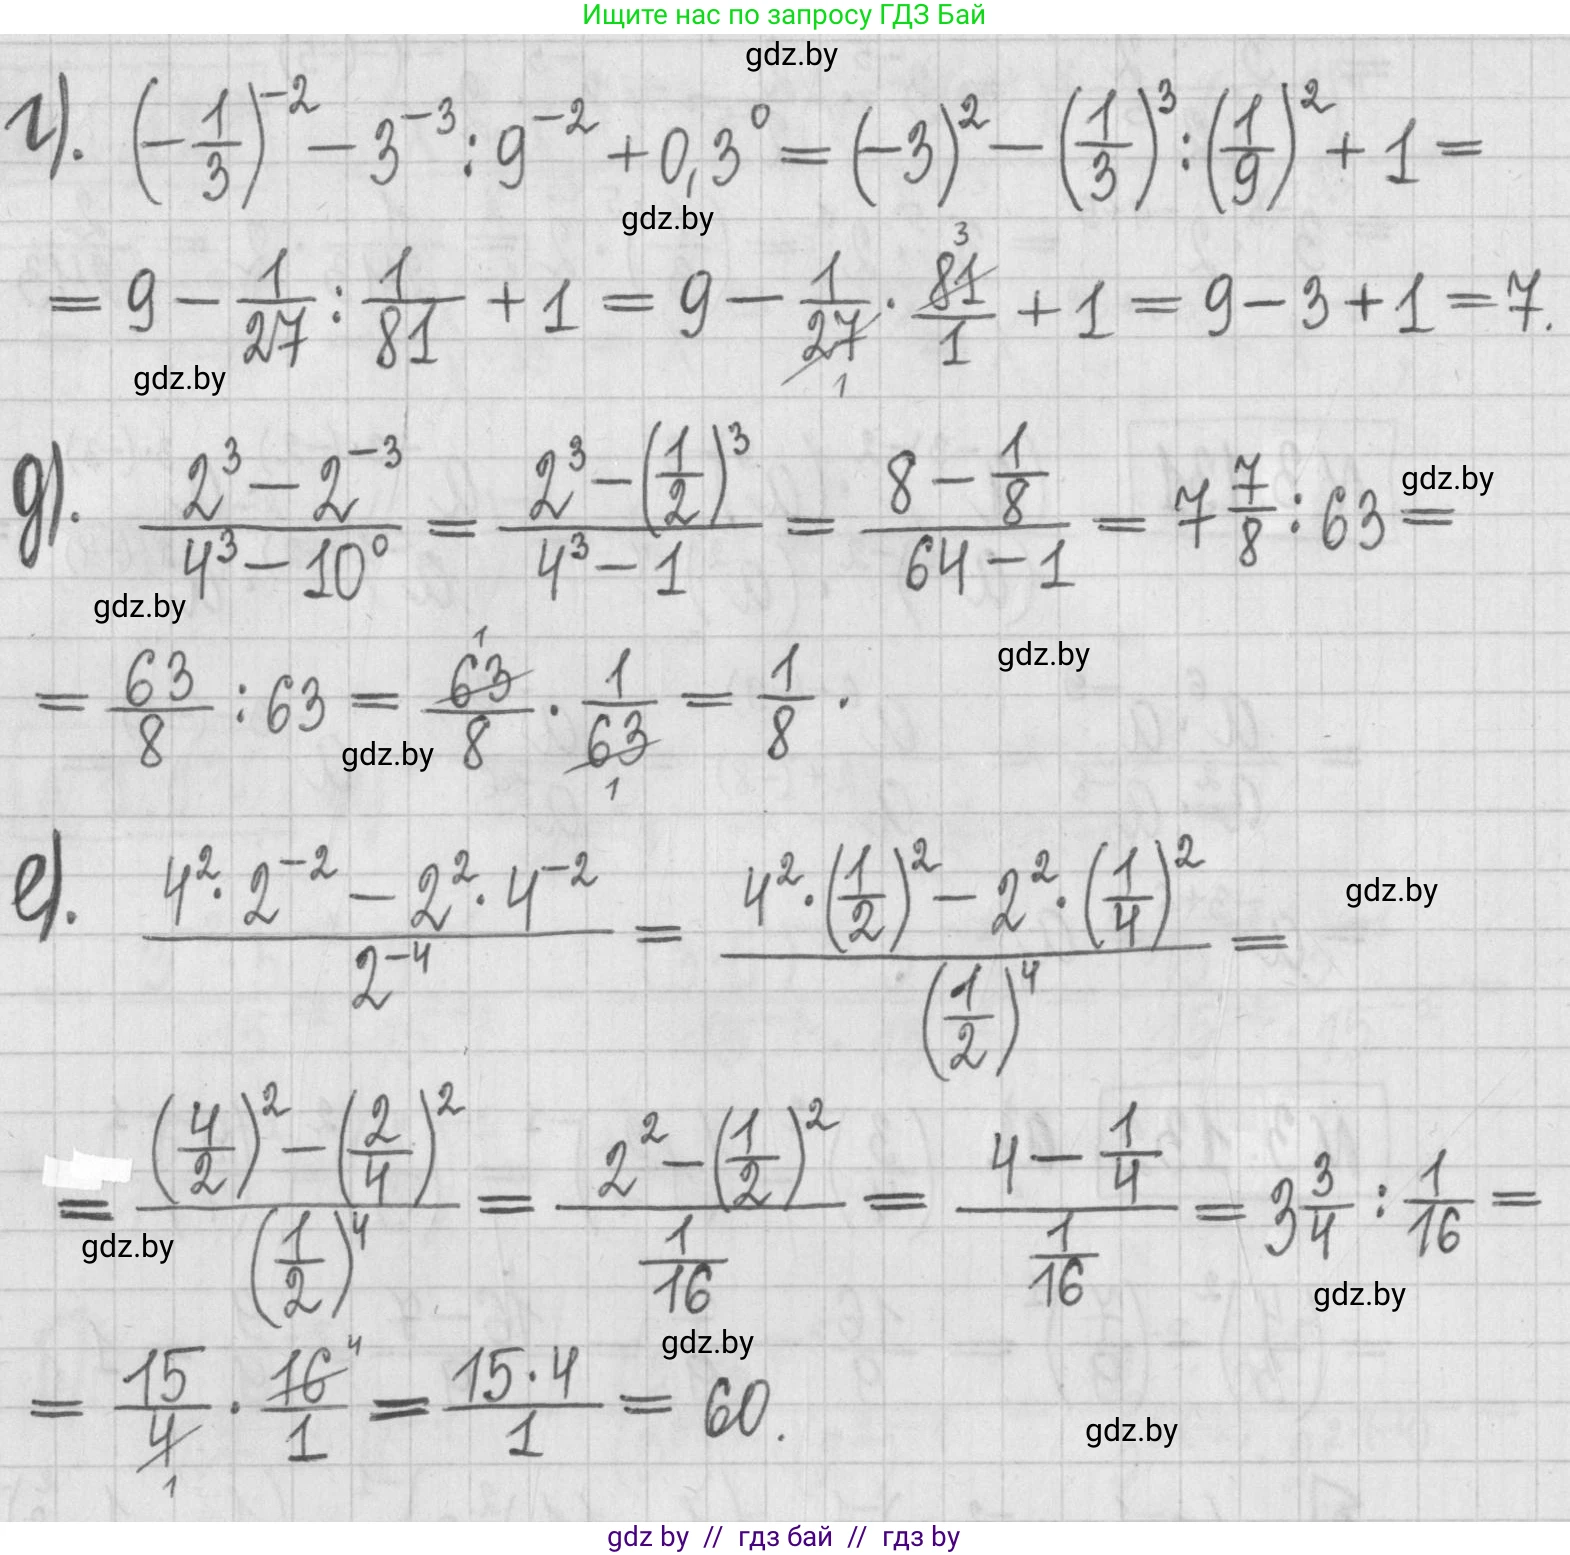 Ищите нас по запросу ГДЗ Бай
gdz.by
г). (-1/3)^-2 - 3^-3 : 9^-2 + 0,3^0 = (-3)^2 - (1/3)^3 : (1/9)^2 + 1 =
gdz.by
= 9 - 1/27 : 1/81 + 1 = 9 - 1/27 1 · 81 3/1 + 1 = 9 - 3 + 1 = 7.
gdz.by
д). (2^3 - 2^-3)/(4^3 - 10^0) = (2^3 - (1/2)^3)/(4^3 - 1) = (8 - 1/8)/(64 - 1) = 7 7/8 : 63 =
gdz.by
gdz.by
gdz.by
= 63/8 : 63 = 63 1/8 · 1/63 1 = 1/8 .
gdz.by
е). (4^2 · 2^-2 - 2^2 · 4^-2)/2^-4 = (4^2 · (1/2)^2 - 2^2 · (1/4)^2)/(1/2)^4 =
gdz.by
= ((4/2)^2 - (2/4)^2)/(1/2)^4 = (2^2 - (1/2)^2)/(1/16) = (4 - 1/4)/(1/16) = 3 3/4 : 1/16 =
gdz.by
gdz.by
gdz.by
= 15/4 1 · 16 4/1 = 15·4/1 = 60.
gdz.by
gdz by // гдз бай // гдз by